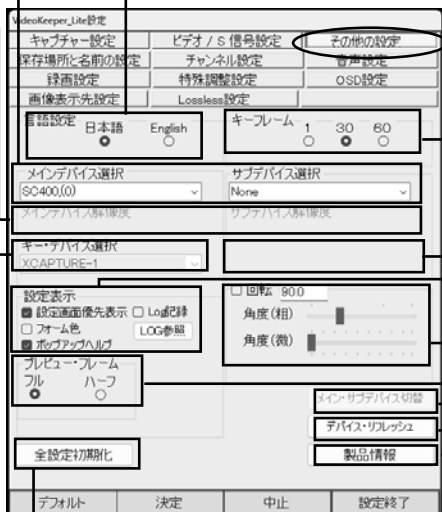 VideoKeeper_Lite設定
キャプチャー設定 ビデオ / S 信号設定 その他の設定
保存場所と名前の設定 チャンネル設定 音声設定
録画設定 特殊調整設定 OSD設定
画像表示先設定 Lossless設定
言語設定 日本語 English
キーフレーム 1 30 60
メインデバイス選択 サブデバイス選択
SC400,(0) None
メインデバイス解像度 サブデバイス解像度
キー・デバイス選択
XCAPTURE-1
設定表示
設定画面優先表示 Log記録
フォーム色 LOG参照
ポップアップヘルプ
回転 90.0
角度(粗)
角度(微)
プレビュー・フレーム
フル ハーフ
メイン・サブデバイス切替
デバイス・リフレッシュ
全設定初期化 製品情報
デフォルト 決定 中止 設定終了